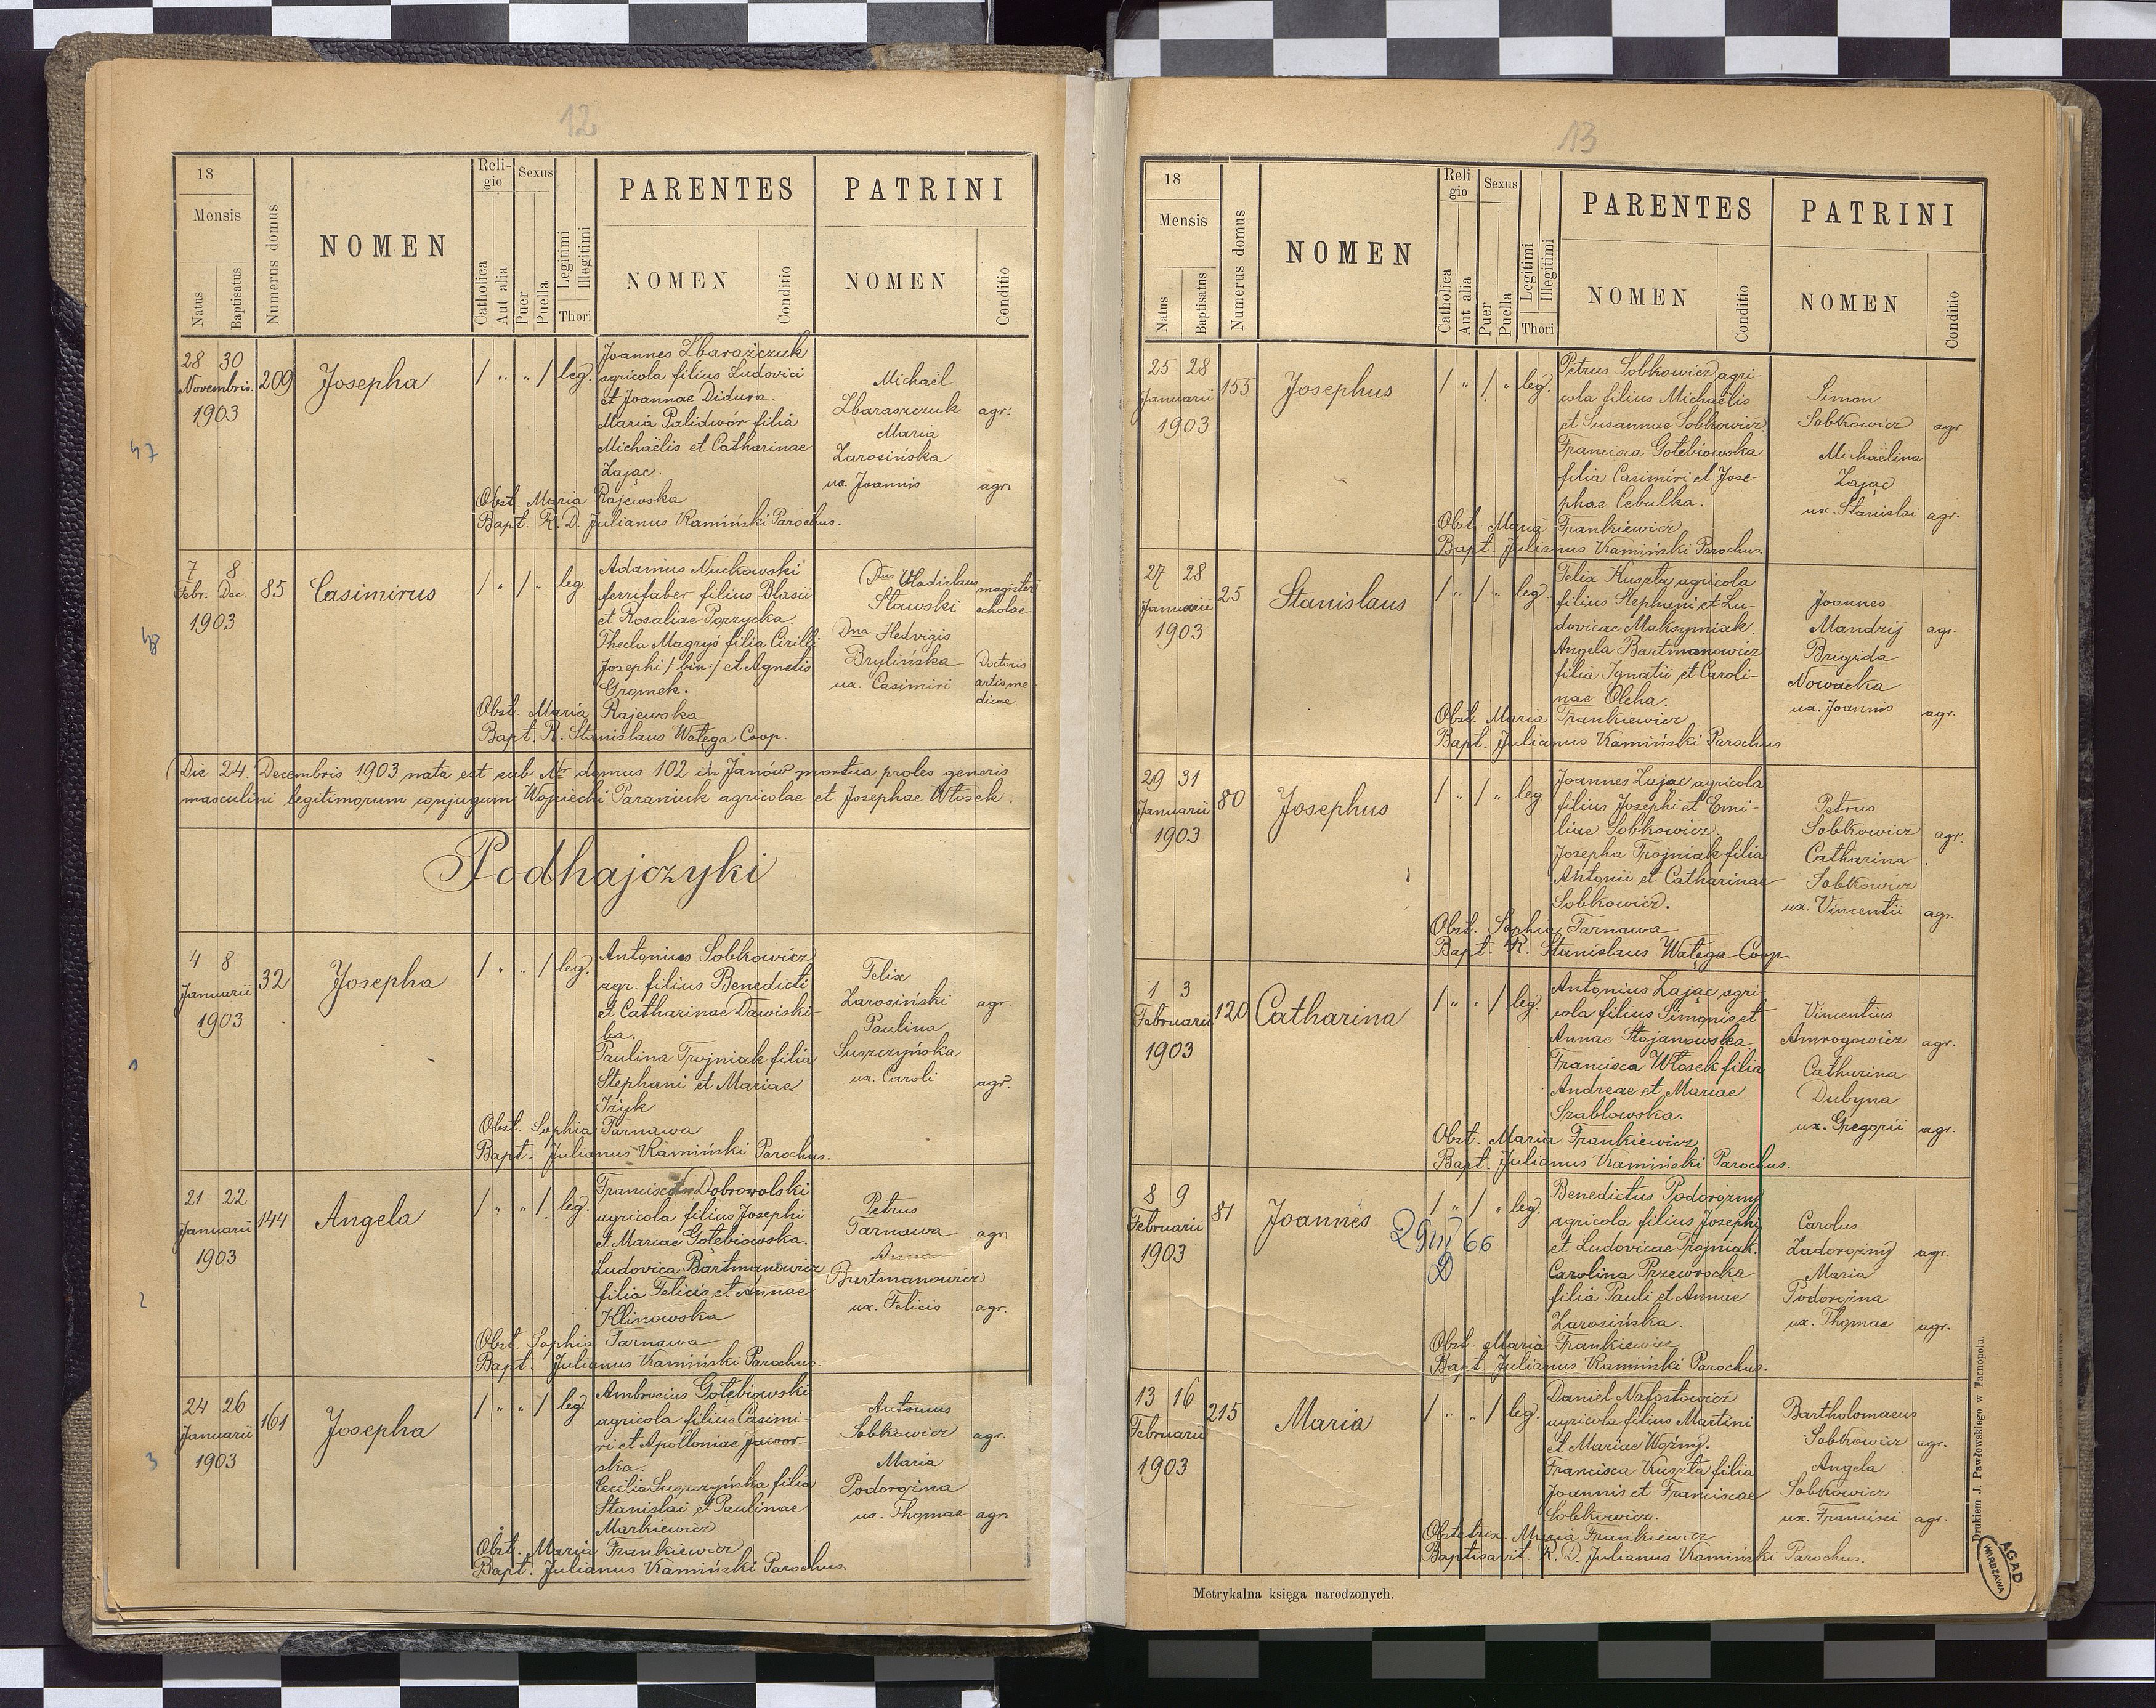 12
18
Mensis
Natus
Baptisatus
Numerus domus
NOMEN
Reli-
gio
Catholica
Aut alia
Sexus
Puer
Puella
Legitimi
Illegitimi
Thori
PARENTES
NOMEN
Conditio
PATRINI
NOMEN
Conditio
47
28 30
Novembris.
1903
209
Josepha
/ „ „ / leg.
Joannes Zbarażczuk
agricola filius Ludovici
et Joannae Didura.
Maria Palidwór filia
Michaëlis et Catharinae
Zając.
Michaël
Zbaraszczuk agr.
Maria
Zarosińska
ux. Joannis agr.
Obst. Maria Rajewska
Bapt. R. D. Julianus Kamiński Parochus.
48
7 8
Febr. Dec.
1903
85
Casimirus
/ „ / „ leg.
Adamus Nuckowski
ferrifaber filius Blasii
et Rosaliae Porzycka.
Thecla Magryś filia Cirilli
Josephi /:bin:/ et Agnetis
Gromek.
Dnus Vladislaus magister
Sławski scholae
Dna Hedvigis
Brylińska Doctoris
ux. Casimiri artis me-
dicae.
Obst. Maria Rajewska
Bapt. R. Stanislaus Wałęga Coop.
Die 24. Decembris 1903 nata est sub Nr domus 102 in Janów mortua proles generis
masculini legitimorum conjugum Wojciechi Paraniuk agricolae et Josephae Włosek.
Podhajczyki
1
4 8
Januarii
1903
32
Josepha
/ „ „ / leg.
Antonius Sobkowicz
agr. filius Benedicti
et Catharinae Dawiski-
ba.
Paulina Trojniak filia
Stephani et Mariae
Iżyk
Felix
Zarosiński agr
Paulina
Suszczyńska
ux. Caroli agr.
Obst. Sophia Tarnawa
Bapt. Julianus Kamiński Parochus.
2
21 22
Januarii
1903
144
Angela
/ „ „ / leg.
Dobrowolski
agricola filius Josephi
et Mariae Gołebiowska.
Ludovica Bartmanowicz
filia Felicis et Annae
Klimowska
Petrus
Tarnawa agr
Anna
Bartmanowicz
ux. Felicis agr.
Obst. Sophia Tarnawa
Bapt. Julianus Kamiński Parochus.
3
24 26
Januarii
1903
161
Josepha
/ „ „ / leg.
Ambrosius Gołebiowski
agricola filius Casimi-
ri et Apolloniae Jawor-
ska.
Cecilia Suszczyńska filia
Stanislai et Paulinae
Markiewicz
Antonius
Sobkowicz agr.
Maria
Podorożna
ux. Thomae agr.
Obst. Maria Frankiewicz
Bapt. Julianus Kamiński Parochus.
13
18
Mensis
Natus
Baptisatus
Numerus domus
NOMEN
Reli-
gio
Catholica
Aut alia
Sexus
Puer
Puella
Legitimi
Illegitimi
Thori
PARENTES
NOMEN
Conditio
PATRINI
NOMEN
Conditio
25 28
Januarii
1903
155
Josephus
/ „ / „ leg.
Petrus Sobkowicz agri-
cola filius Michaëlis
et Susannae Sobkowicz.
Francisca Gołebiowska
filia Casimiri et Jose-
phae Cebulka.
Simon
Sobkowicz agr.
Michaëlina
Zając
ux. Stanislai agr.
Obst. Maria Frankiewicz
Bapt. Julianus Kamiński Parochus.
27 28
Januarii
1903
25
Stanislaus
/ „ / „ leg
Felix Kuszta agricola
filius Stephani et Lu-
dovicae Maksymiak.
Angela Bartmanowicz
filia Ignatii et Caroli-
nae Olcha.
Joannes
Mandrij agr.
Brigida
Nowacka
ux. Joannis agr.
Obst. Maria Frankiewicz
Bapt. Julianus Kamiński Parochus
29 31
Januarii
1903
80
Josephus
/ „ / „ leg
Joannes Zając agricola
filius Josephi et Emi-
liae Sobkowicz.
Josepha Trojniak filia
Antonii et Catharinae
Sobkowicz.
Petrus
Sobkowicz agr.
Catharina
Sobkowicz
ux. Vincentii agr.
Obst. Sophia Tarnawa
Bapt. R. Stanislaus Wałęga Coop.
1 3
Februarii
1903
120
Catharina
/ „ „ / leg.
Antonius Zając agri-
cola filius Simonis et
Annae Stojanowska
Francisca Włosek filia
Andreae et Mariae
Szabłowska.
Vincentius
Amrogowicz agr.
Catharina
Dubyna
ux. Gregorii agr.
Obst. Maria Frankiewicz
Bapt. Julianus Kamiński Parochus.
8 9
Februarii
1903
81
Joannes
29 III 66
/ „ / „ leg.
Benedictus Podorożny
agricola filius Josephi
et Ludovicae Trojniak.
Carolina Przewrocka
filia Pauli et Annae
Zarosińska.
Carolus
Zadorożny agr.
Maria
Podorożna
ux. Thomae agr.
Obst. Maria Frankiewicz
Bapt. Julianus Kamiński Parochus.
13 16
Februarii
1903
215
Maria
/ „ „ / leg.
Daniel Nafostowicz
agricola filius Martini
et Mariae Woźny.
Francisca Kuszta filia
Joannis et Franciscae
Sobkowicz.
Bartholomaeus
Sobkowicz agr.
Angela
Sobkowicz
ux. Francisci agr.
Obstetrix Maria Frankiewicz
Baptisavit R. D. Julianus Kamiński Parochus.
Metrykalna księga narodzonych.
Drukiem J. Pawłowskiego w Tarnopolu.
AGAD
WARSZAWA